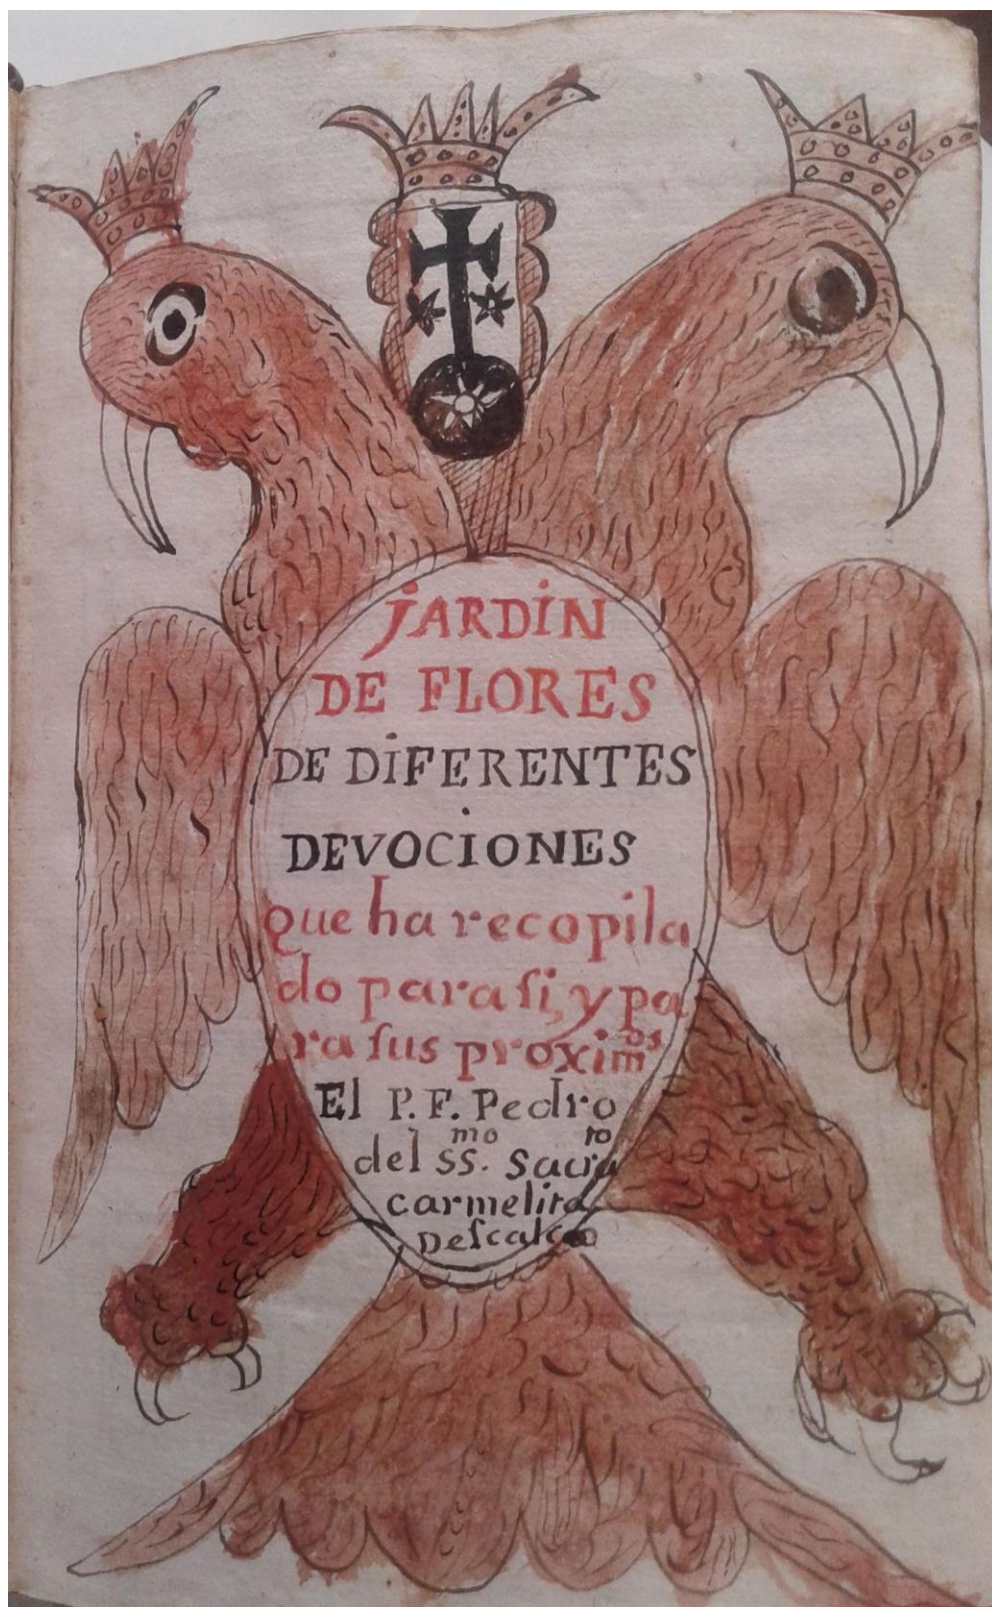 jARDiN
DE FLORES
DE DiFERENTES
DEVOCiONES
que ha recopila
do para ſi, y pa
ra ſus proximos
El P. F. Pedro
del SS.mo Sacrato
carmelita
Deſcalço